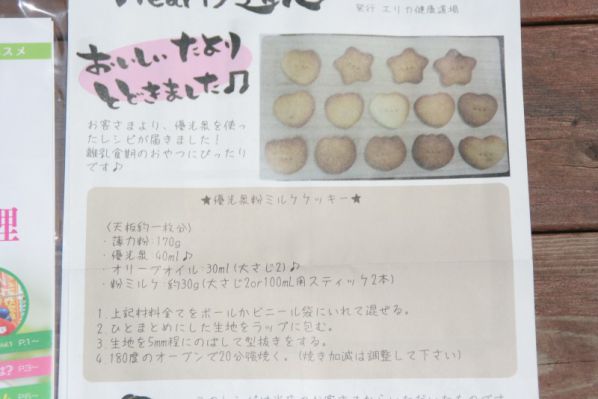 Hearty通心
発行 エリカ健康道場
おいしいたより
とどきました♫
お客さまより、優光泉を使っ
たレシピが届きました!
離乳食期のおやつにぴったり
です♪
★優光泉粉ミルククッキー★
〈天板約一枚分〉
・薄力粉:170g
・優光泉 40ml♪
・オリーブオイル:30ml(大さじ2)♪
・粉ミルク:約30g(大さじ2or100mL用スティック2本)
1.上記材料全てをボールかビニール袋にいれて混ぜる。
2.ひとまとめにした生地をラップに包む。
3.生地を5mm程にのばして型抜きをする。
4.180度のオーブンで20分強焼く。(焼き加減は調整して下さい)
スメ
理
P.1~
は?
P.3~